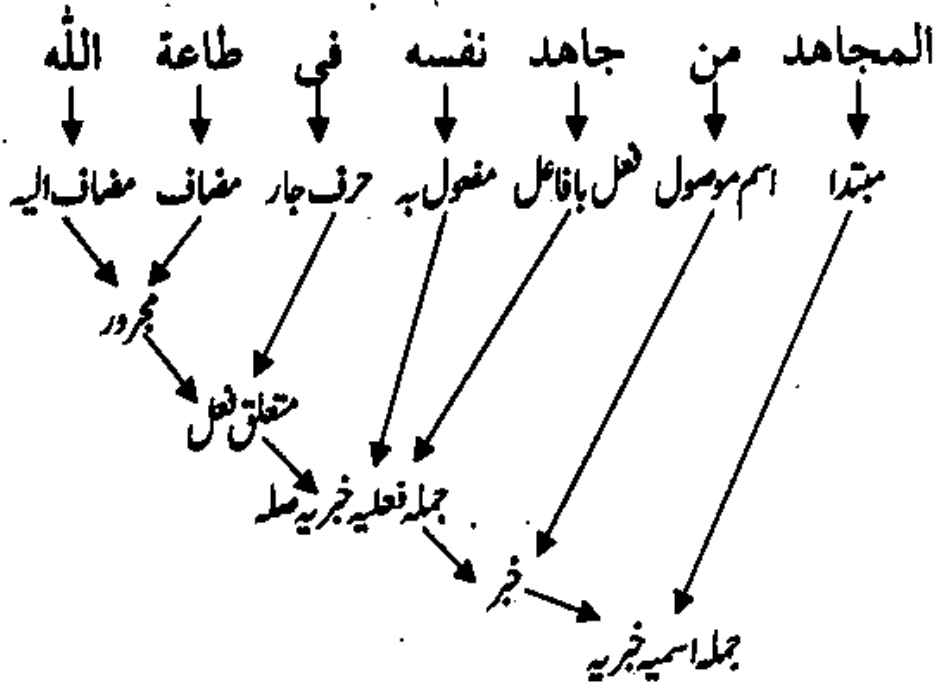 المجاهد من جاهد نفسه فى طاعة الله
مبتدا اسم موصول فعل بافاعل مفعول بہ حرف جار مضاف مضاف الیہ
مجرور
متعلق فعل
جملہ فعلیہ خبریہ صلہ
خبر
جملہ اسمیہ خبریہ